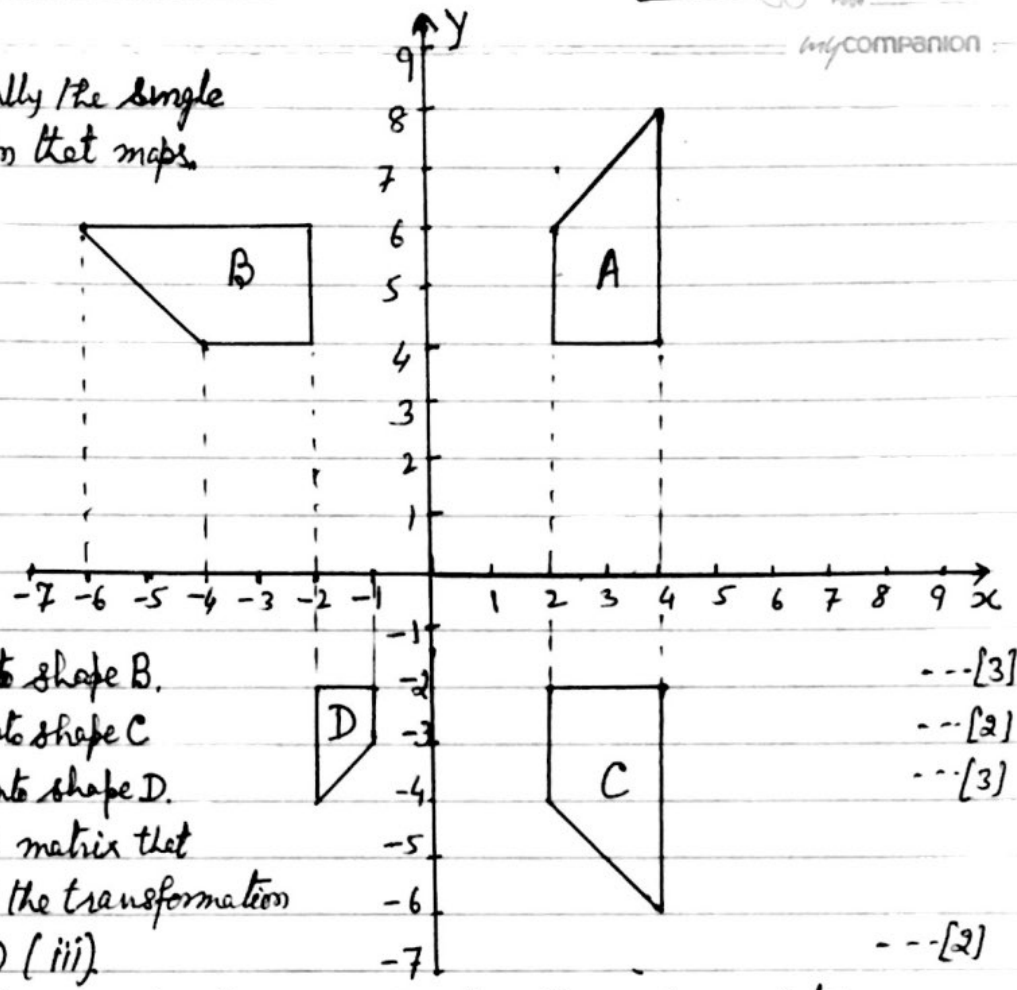 my companion
lly the single
n that maps.
y
9
8
7
6
5
4
3
2
1
B
A
-7 -6 -5 -4 -3 -2 -1 1 2 3 4 5 6 7 8 9 x
-1
-2
-3
-4
-5
-6
-7
D
C
to shape B. ---[3]
nto shape C ---[2]
nto shape D. ---[3]
matrix that
the transformation
) (iii). ---[2]